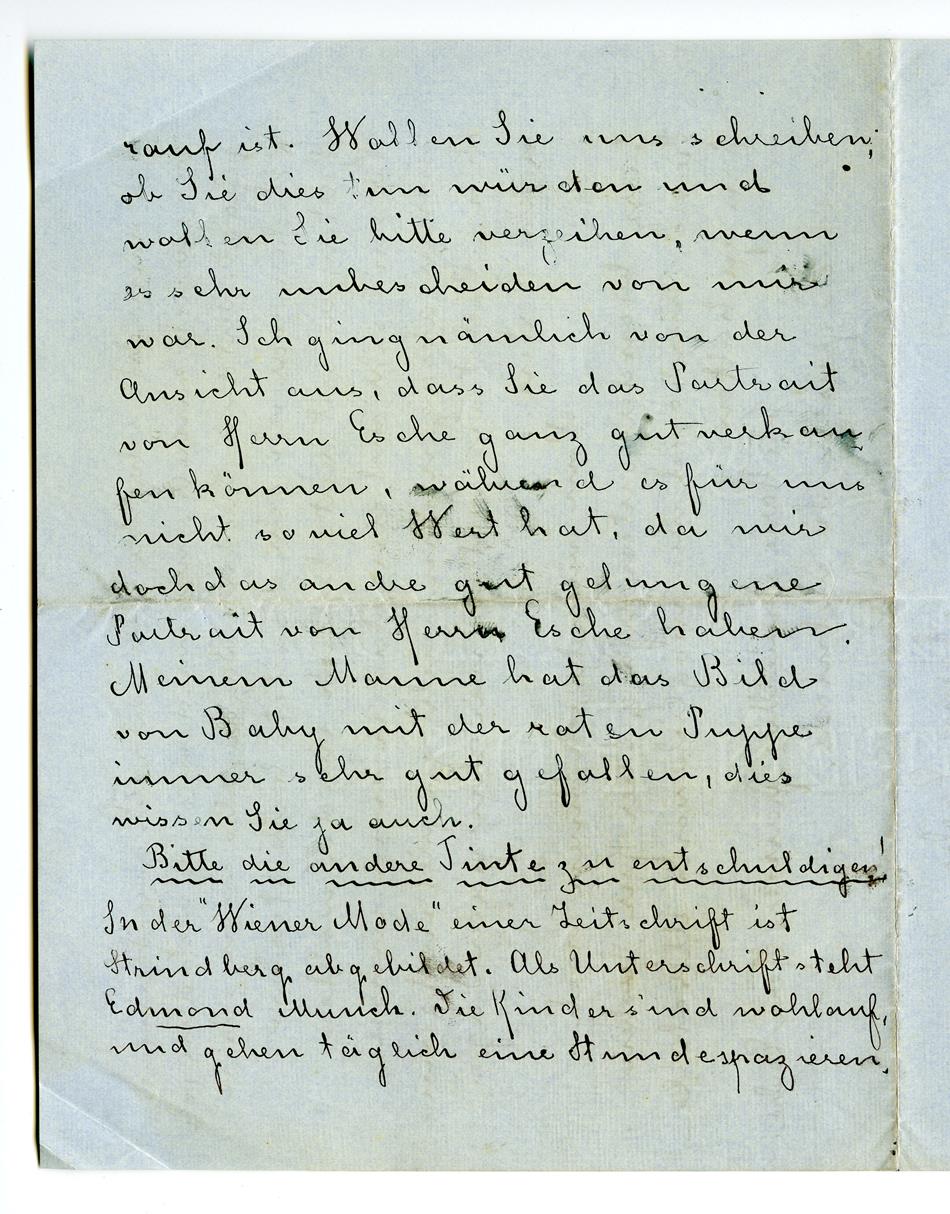 rauf ist. Wollen Sie uns schreiben,
ob Sie dies tun würden und
wollen Sie bitte verzeihen, wenn
es sehr unbescheiden von mir
war. Ich ging nämlich von der
Ansicht aus, dass Sie das Portrait
von Herrn Esche ganz gut verkau
fen können, während es für uns
nicht so viel Wert hat, da wir
doch das andre gut gelungene
Portrait von Herrn Esche haben.
Meinem Manne hat das Bild
von Baby mit der roten Puppe
immer sehr gut gefallen, dies
wissen Sie ja auch.
Bitte die andere Tinte zu entschuldigen!
In der "Wiener Mode" einer Zeitschrift ist
Strindberg abgebildet. Als Unterschrift steht
Edmond Munch. Die Kinder sind wohlauf,
und gehen täglich eine Stunde spazieren.